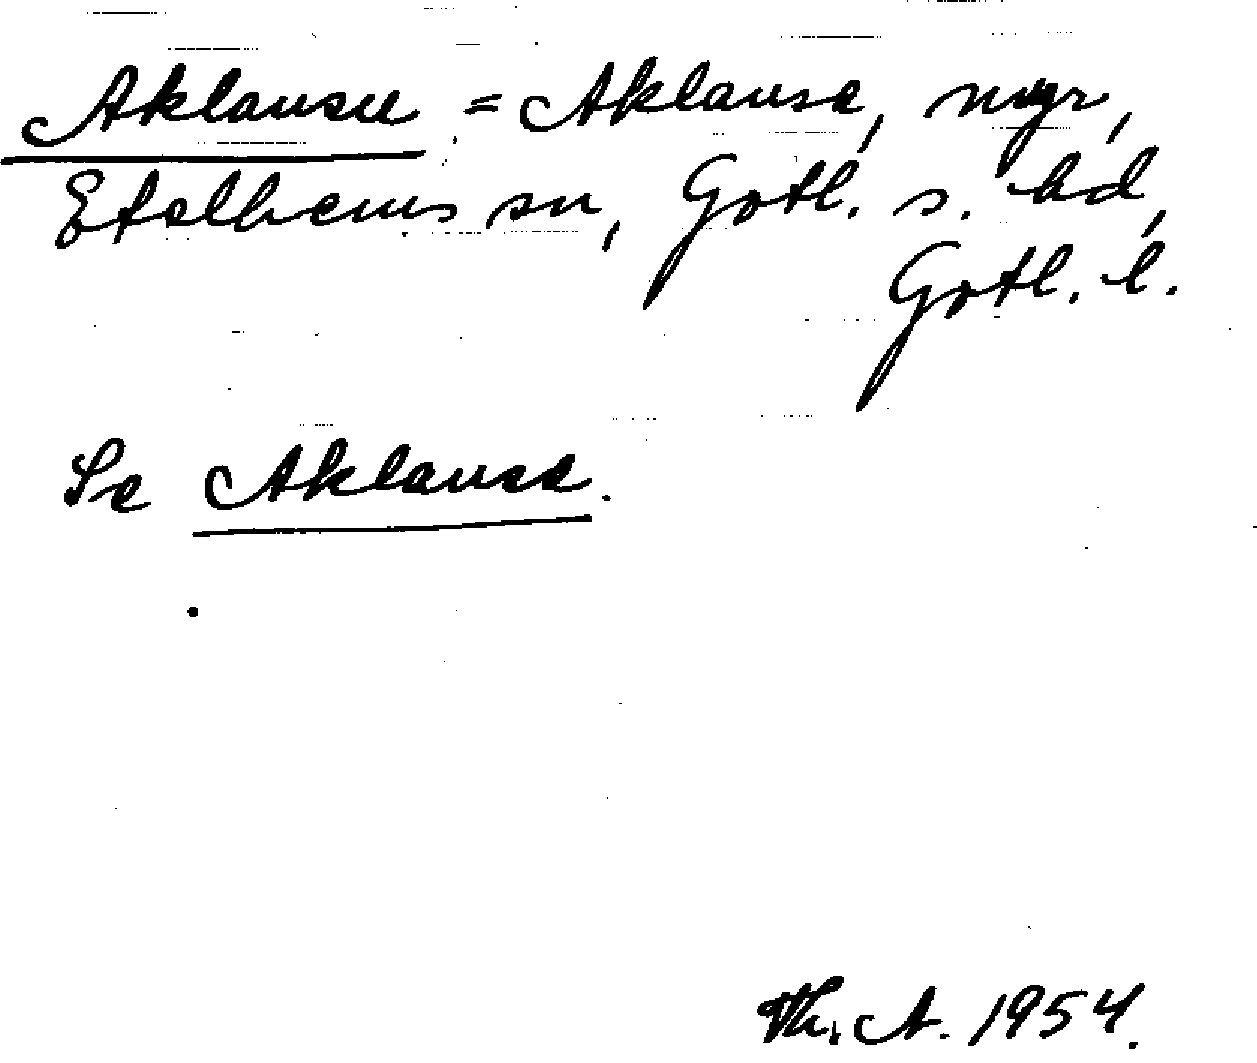 Aklausu = Aklausa, mgr,
Etelhems sn, Gotl. s. hd,
Gotl. l.
Se Aklausa.
Th. A. 1954.